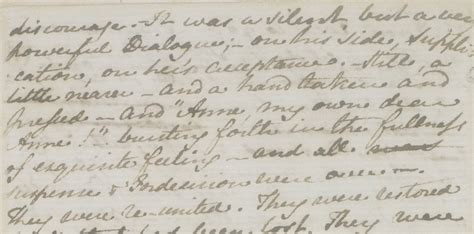 discourage. - It was a silent but a very
powerful Dialogue; - on his side, Suppli=
cation, on her's acceptance. - Still, a
little nearer - and a hand taken and
pressed - and "Anne, my own dear
Anne!" - bursting forth in the fullness
of exquisite feeling - and all
suspense & Indecision were over. -
They were re-united. They were restored
had been lost. They were